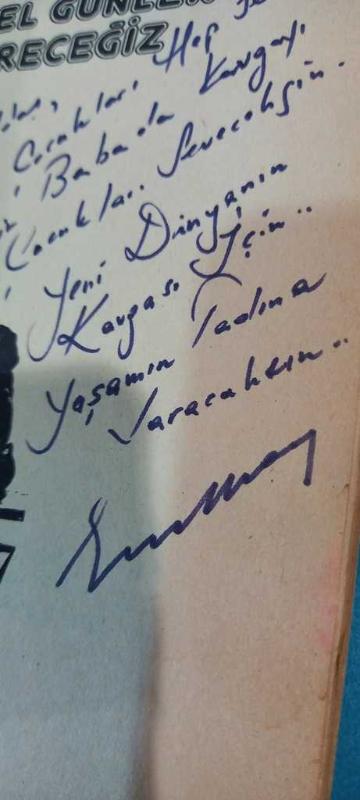 EL GÜNLER
RECEĞİZ
Hep
Çocukları
Babada Kavgayı
Çocukları Seveceksin.
Yeni Dünyanın
Kavgası İçin..
Yaşamın Tadına
Varacaksın..